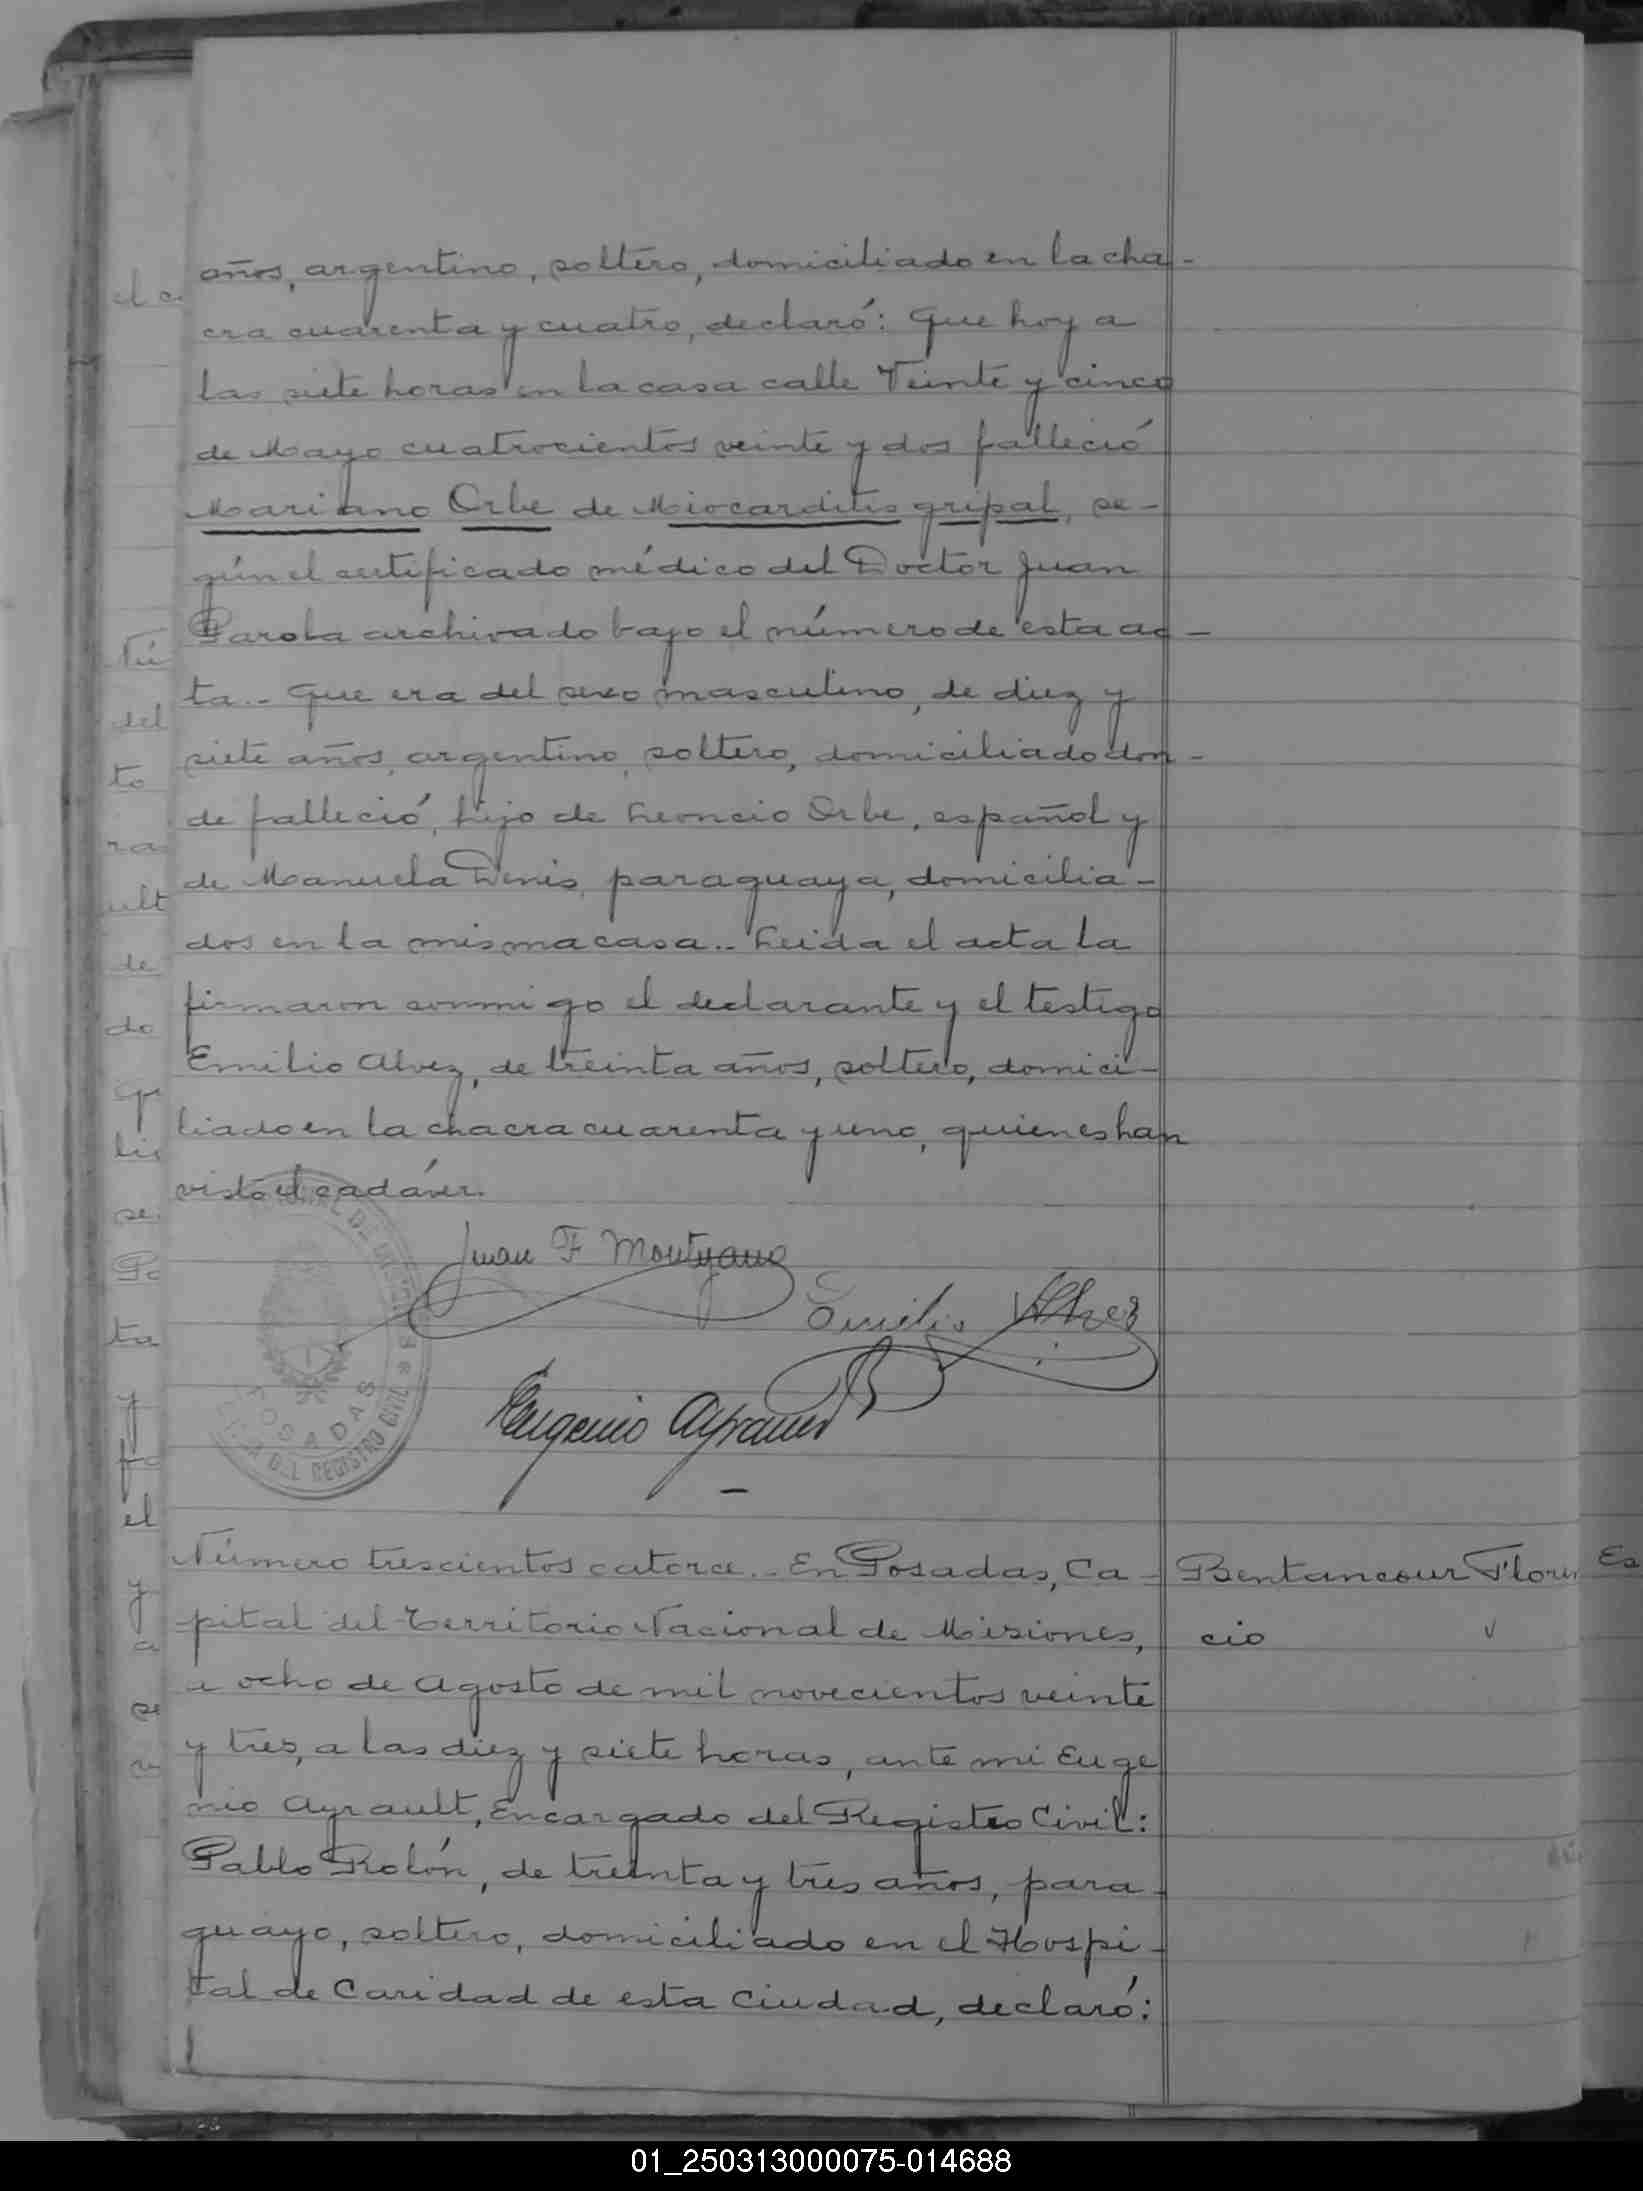 años, argentino, soltero, domiciliado en la cha-
cra cuarenta y cuatro, declaró: Que hoy a
las siete horas en la casa calle Veinte y cinco
de Mayo cuatrocientos veinte y dos falleció
Mariano Orbe de Miocarditis gripal, se-
gún el certificado médico del Doctor Juan
Parola archivado bajo el número de esta ac-
ta.- Que era del sexo masculino, de diez y
siete años, argentino, soltero, domiciliado don-
de falleció, hijo de Leoncio Orbe, español y
de Manuela Denis, paraguaya, domicilia-
dos en la misma casa.- Leida el acta la
firmaron conmigo el declarante y el testigo
Emilio Alvez, de treinta años, soltero, domici-
liado en la chacra cuarenta y uno, quienes han
visto el cadáver.
Juan F
Emilio Alvez
Eugenio Ayrault
POSADAS
DEL REGISTRO CIVIL
Número trescientos catorce.- En Posadas, Ca-
pital del Territorio Nacional de Misiones,
a ocho de Agosto de mil novecientos veinte
y tres, a las diez y siete horas, ante mi Euge
nio Ayrault, Encargado del Registro Civil:
Pablo Rolón, de treinta y tres años, para-
guayo, soltero, domiciliado en el Hospi-
tal de Caridad de esta Ciudad, declaró:
Bentancour Floren
cio
01_250313000075-014688